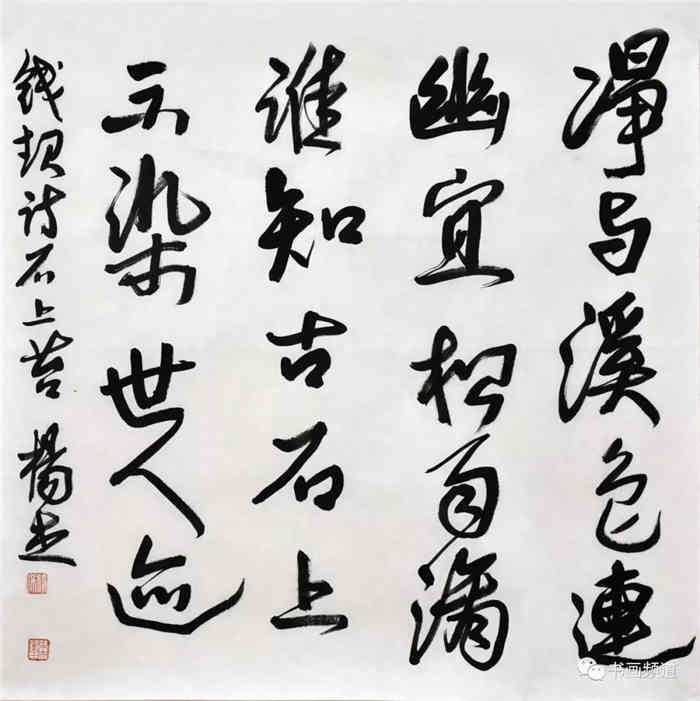 淨与溪色連
幽宜松雨滴
谁知古石上
不染世人迹
钱起诗石上苔 楊
书画频道